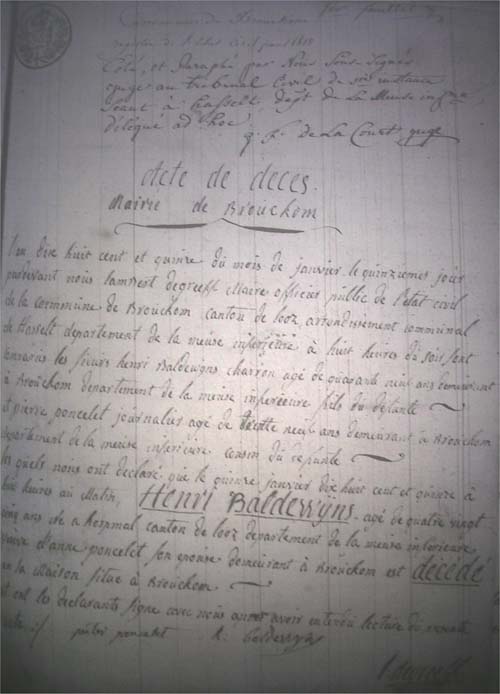 Commune de Brouckom 1er feuillet
registre de l'état civil pour 1815
Coté, et Paraphé par Nous Sous-Signés
juge au tribunal Civil de 1re instance
Séant à hasselt, dept de La Meuse infre
délégué ad hoc
De La Court juge
Acte de deces.
Mairie de Brouckom
l'an dix huit cent et quinze du mois de janvier le quinziemes jour
pardevant nous lambert degreeff Maire officier public de l'etat civil
de la Commune de Brouckom canton de looz, arrondissement communal
de Hasselt departement de la meuse inferieure à huit heures du soir sont
comparus les sieurs henri Baldewyns charron agé de quarante neuf ans demeurant
à Brouckom departement de la meuse inferieure fils du défunte
et pierre poncelet journalier agé de trente neuf ans demeurant à Brouckom
departement de la meuse inferieure cousin du defunte
les quels nous ont declaré que le quinze janvier dix huit cent et quinze à
huit heures au Matin, Henri Balderwijns agé de quatre vingt
cinq ans né a hopmal canton de looz departement de la meuse inferieure
veuve d'anne poncelet son epouse domeurant à Brouckom est décédé
en la Maison situe a Brouckom
et ont les declarants signe avec nous apres avoir entendu lecture du presente
acte :/ piter poncelet h: balderwyns